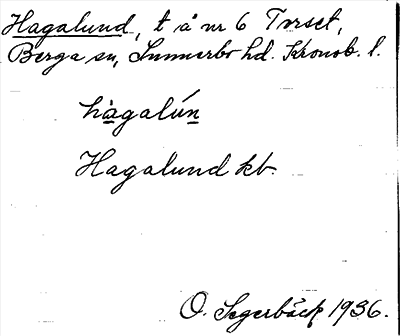 Hagalund, t å nr 6 Torset,
Berga sn, Sunnerbo hd. Kronob. l.
hàgalún
Hagalund kb.
O. Segerbäck 1936.